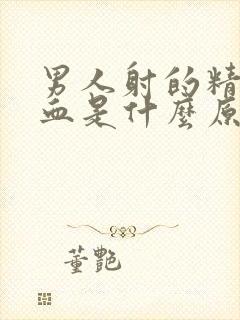 男人射的精
血是什麼原
董艷